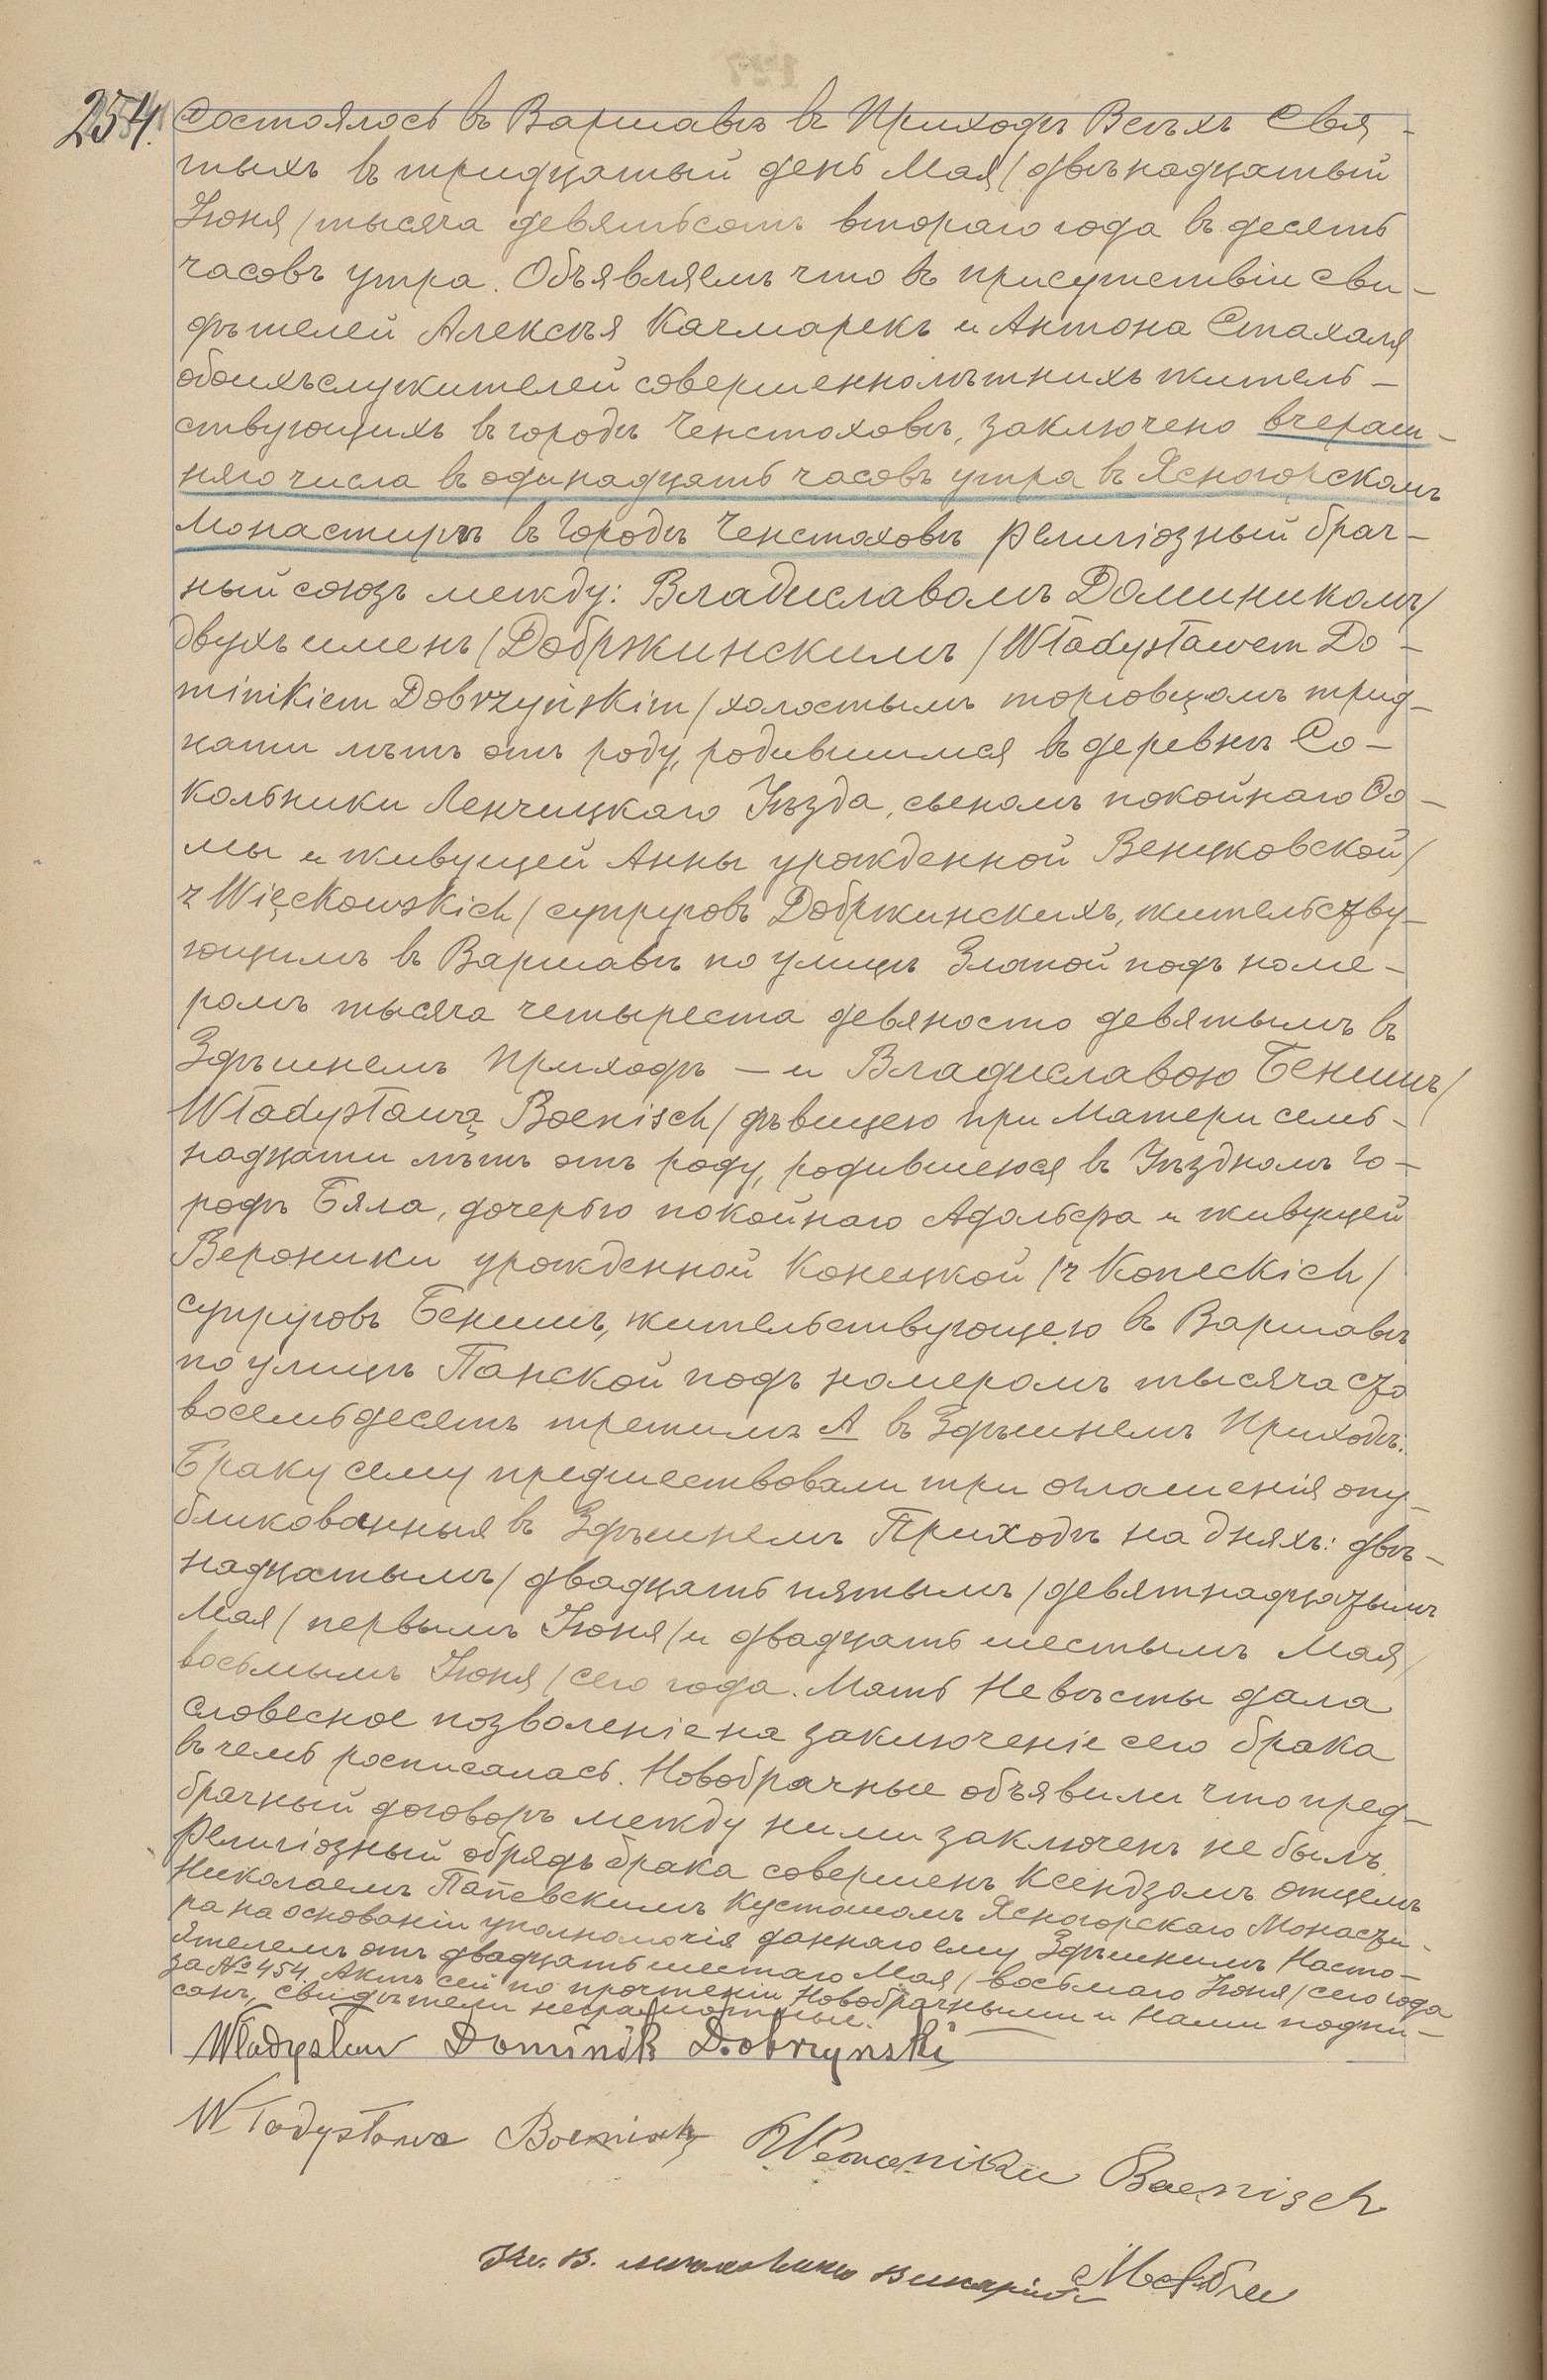 254. Состоялось въ Варшавѣ въ Приходѣ Всѣхъ Свя-
тыхъ въ тридцатый день Мая / двѣнадцатый
Iюня / тысяча девятьсотъ втораго года въ десять
часовъ утра. Объявляемъ что въ присутствiи сви-
дѣтелей Алексѣя Качмарекъ и Антона Стахаля
обоихъ служителей совершеннолѣтнихъ житель-
ствующихъ въ городѣ Ченстоховѣ, заключено вчераш-
няго числа въ одинадцать часовъ утра въ Ясногорскомъ
Монастирѣ въ Городѣ Ченстоховѣ религiозный брач-
ный союзъ между: Владиславомъ Доминикомъ /
двухъ именъ / Добржинскимъ / Władysławem Do-
minikiem Dobrzyńskim / холостымъ торговцомъ трид-
цати лѣтъ отъ роду, родившимся въ деревнѣ Со-
кольники Ленчицкаго Уѣзда, сыномъ покойнаго Ѳо-
мы и живущей Анны урожденной Венцковской /
z Więckowskich / супруговъ Добржинскихъ, жительству-
ющимъ въ Варшавѣ по улицѣ Златой подъ номе-
ромъ тысяча четыреста девяносто девятымъ въ
Здѣшнемъ Приходѣ - и Владиславою Бенишъ /
Władysławą Boenisch / дѣвицею при Матери семь-
надцати лѣтъ отъ роду, родившеюся въ Уѣздномъ го-
родѣ Бяла, дочерью покойнаго Адольфа и живущей
Вероники урожденной Конецкой / z Koneckich /
супруговъ Бенишъ, жительствующею въ Варшавѣ
по улицѣ Панской подъ номеромъ тысяча сто
восемьдесятъ третимъ А въ Здѣшнемъ Приходѣ.
Браку сему предшествовали три оглашенiя опу-
бликованныя въ Здѣшнемъ Приходѣ на дняхъ: двѣ-
надцатымъ / двадцать пятымъ / девятнадцатымъ
Мая / первымъ Iюня / и двадцать шестымъ Мая /
восьмымъ Iюня / сего года. Мать Невѣсты дала
словесное позволенiе на заключенiе сего брака
въ чемъ росписалась. Новобрачные объявили что пред-
брачный договоръ между ними заключенъ не былъ.
Религiозный обрядъ брака совершенъ Ксендзомъ отцемъ
Николаемъ Папевскимъ Кустошомъ Ясногорскаго Монасты-
ра на основанiи уполномочiя даннаго ему Здѣшнимъ Насто-
ятелемъ отъ двадцать шестаго Мая / восьмаго Iюня / сего года
за № 454. Актъ сей по прочтенiи Новобрачными и Нами подпи-
санъ, свидѣтели неграмотные.
Władysław Dominik Dobrzynski
Władysława Boenisch Weronika Boenisch